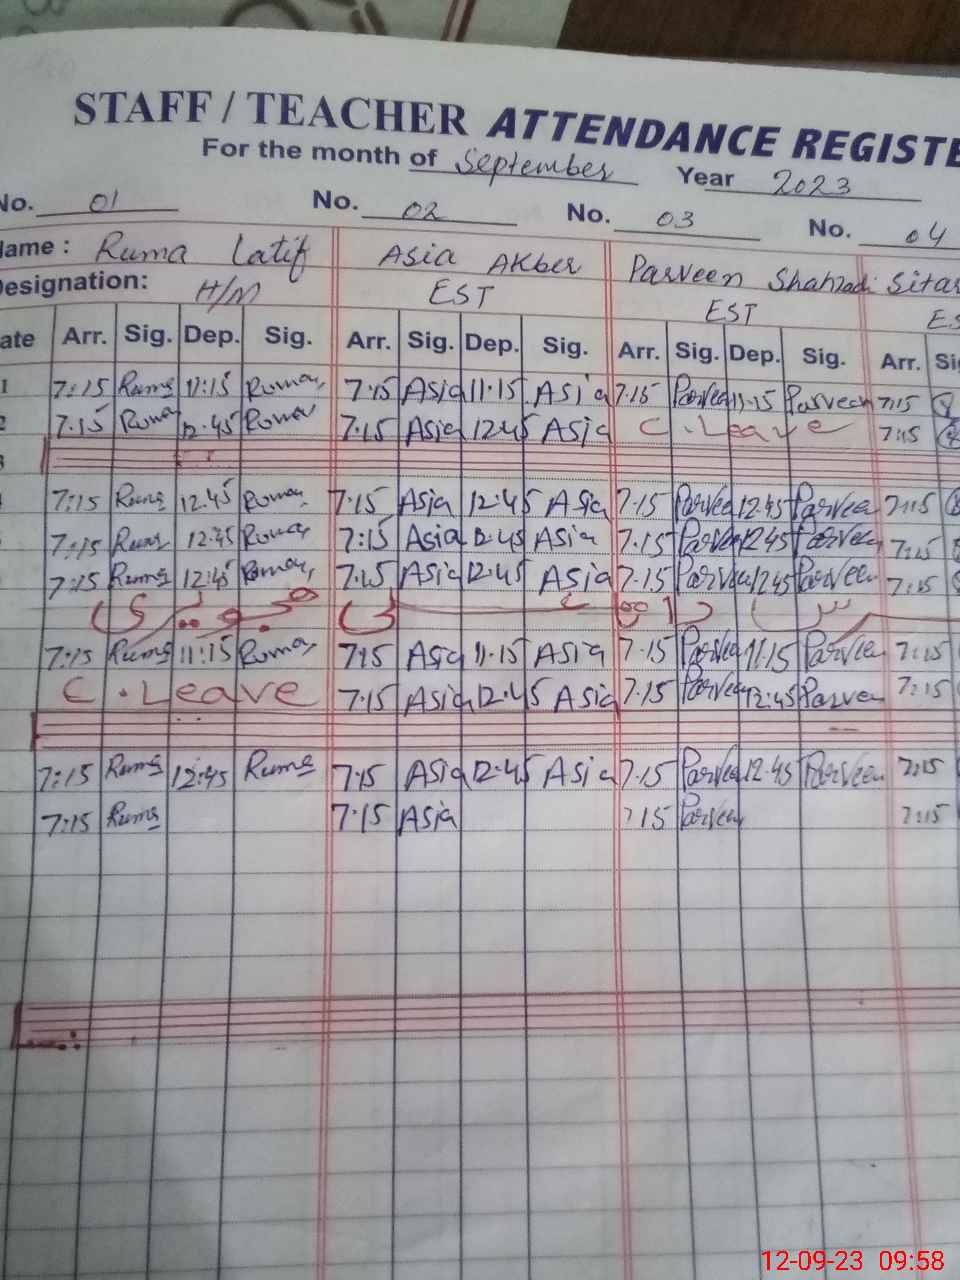 STAFF / TEACHER ATTENDANCE REGISTE
For the month of September Year 2023
No. 01 No. 02 No. 03 No. 04
Name : Ruma Latif Asia Akber Parveen Shahzadi Sitar
Designation: H/M EST EST ES
ate Arr. Sig. Dep. Sig. Arr. Sig. Dep. Sig. Arr. Sig. Dep. Sig. Arr. Si
1 7:15 Ruma 11:15 Ruma 7:15 Asia 11.15 Asia 7.15 Parveen 11.15 Parveen 7:15
2 7:15 Ruma 12.45 Ruma 7.15 Asia 12.45 Asia C.Leave 7:15
3
7:15 Ruma 12.45 Ruma 7.15 Asia 12.45 Asia 7.15 Parveen 12.45 Parveen 7:15
7:15 Ruma 12:45 Ruma 7:15 Asia 12.45 Asia 7.15 Parveen 12.45 Parveen 7:15
7:15 Ruma 12:45 Ruma 7:15 Asia 12.45 Asia 7.15 Parveen 12.45 Parveen 7:15
7:15 Ruma 11:15 Ruma 7:15 Asia 11.15 Asia 7.15 Parveen 11.15 Parveen 7:15
C.Leave 7:15 Asia 12.45 Asia 7.15 Parveen 12:45 Parveen 7:15
7:15 Ruma 12:45 Ruma 7:15 Asia 12.45 Asia 7.15 Parveen 12.45 Parveen 7:15
7:15 Ruma 7:15 Asia 7 15 Parveen 7:15
12-09-23 09:58